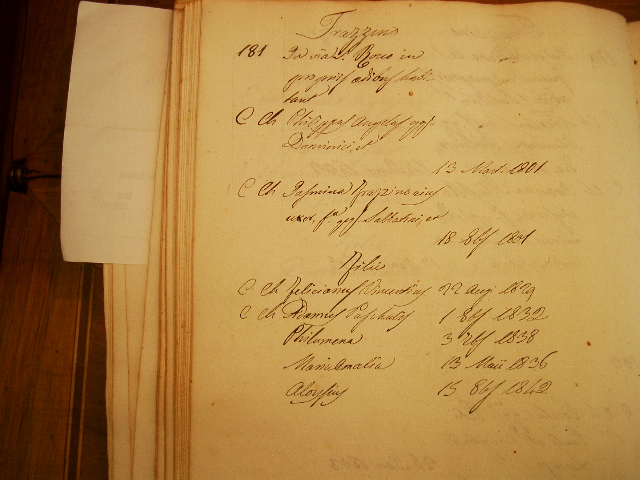 Frazzino
181 In viâ S. Roco in
propriis ædibus habi-
tant
C Ch Philippus Angelus qq.
Dominici, et
13 Mart. 1801
C Ch Jasmina Frazzino ejus
uxor, fa qq. Sabbatini, et
18 8bs 1801
Filii
C Ch Felicianus Vincentius 22 Aug. 1829
C Ch Adamus Paschalis 1 8bs 1832
Philumena 3 7bs 1838
Maria Amalia 13 Maii 1836
Aloysius 15 8bs 1842